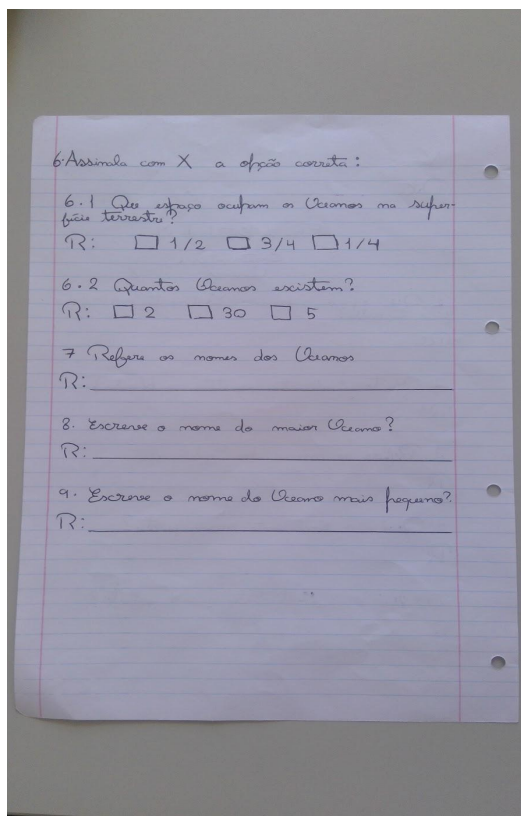 6. Assinala com X a opção correta :
6.1 Que espaço ocupam os Oceanos na super-
fície terrestre?
R: ☐ 1/2 ☐ 3/4 ☐ 1/4
6.2 Quantos Oceanos existem?
R: ☐ 2 ☐ 30 ☐ 5
7 Refere os nomes dos Oceanos
R:
8. Escreve o nome do maior Oceano?
R:
9. Escreve o nome do Oceano mais pequeno?
R: